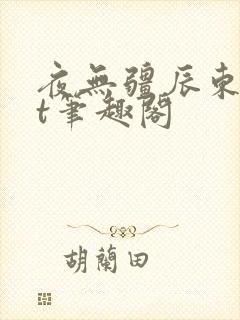 夜無疆辰東
t筆趣閣
胡蘭田